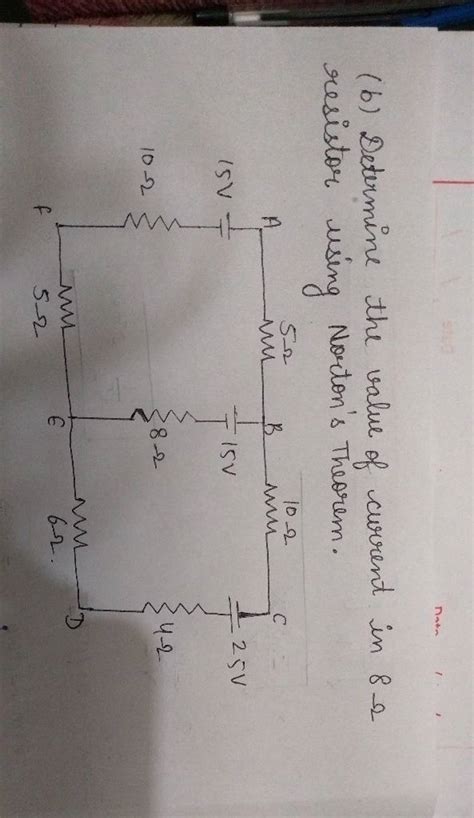 (b) Determine the value of current in 8Ω
resistor using Norton's Theorem.
A
5Ω
B
10Ω
C
15V
15V
25V
10Ω
8Ω
4Ω
F
5Ω
E
6Ω.
D